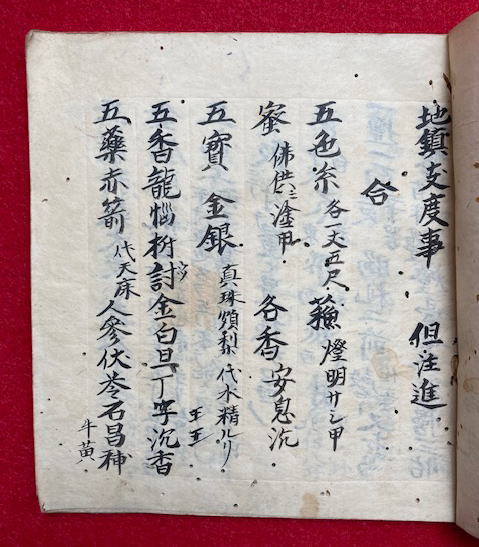 地鎮支度事 但注進
合
五色糸 各一丈五尺 蘓 燈明サシ甲
蜜 佛供ニ塗甲 名香 安息 沉
五寳 金銀 真珠 頗梨 代水精ルリ
五香 龍悩 金 白旦 丁字 沉香
五藥 赤箭 代天麻 人參 伏苓 石昌補
牛黄